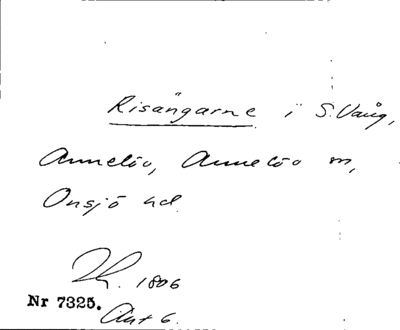 Risängarne i S. Vång,
Annelöv, Annelöv sn,
Onsjö hd.
1806
Nr 7325.
Akt 6.